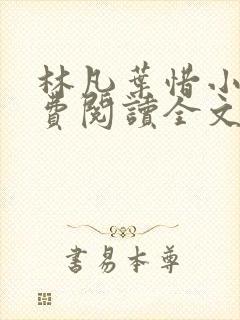 林凡葉惜小
費閱讀全文
書易本尊